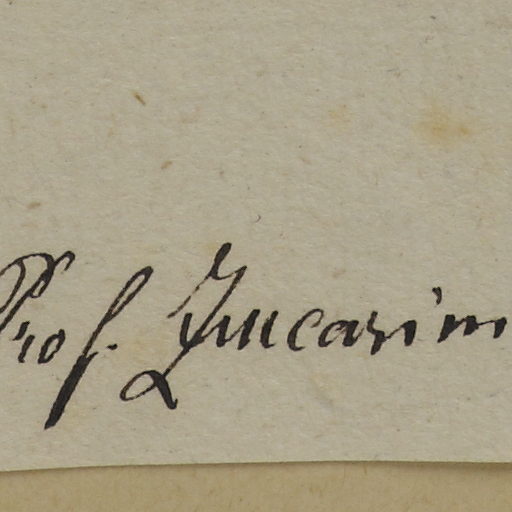 Prof. Zuccarini